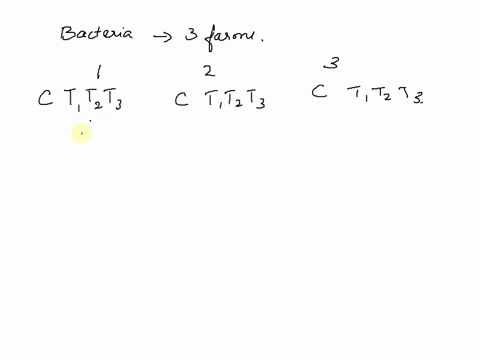 Bacteria → 3 farone.
1 2 3
C T₁T₂T₃ C T₁T₂T₃ C T₁T₂T₃.